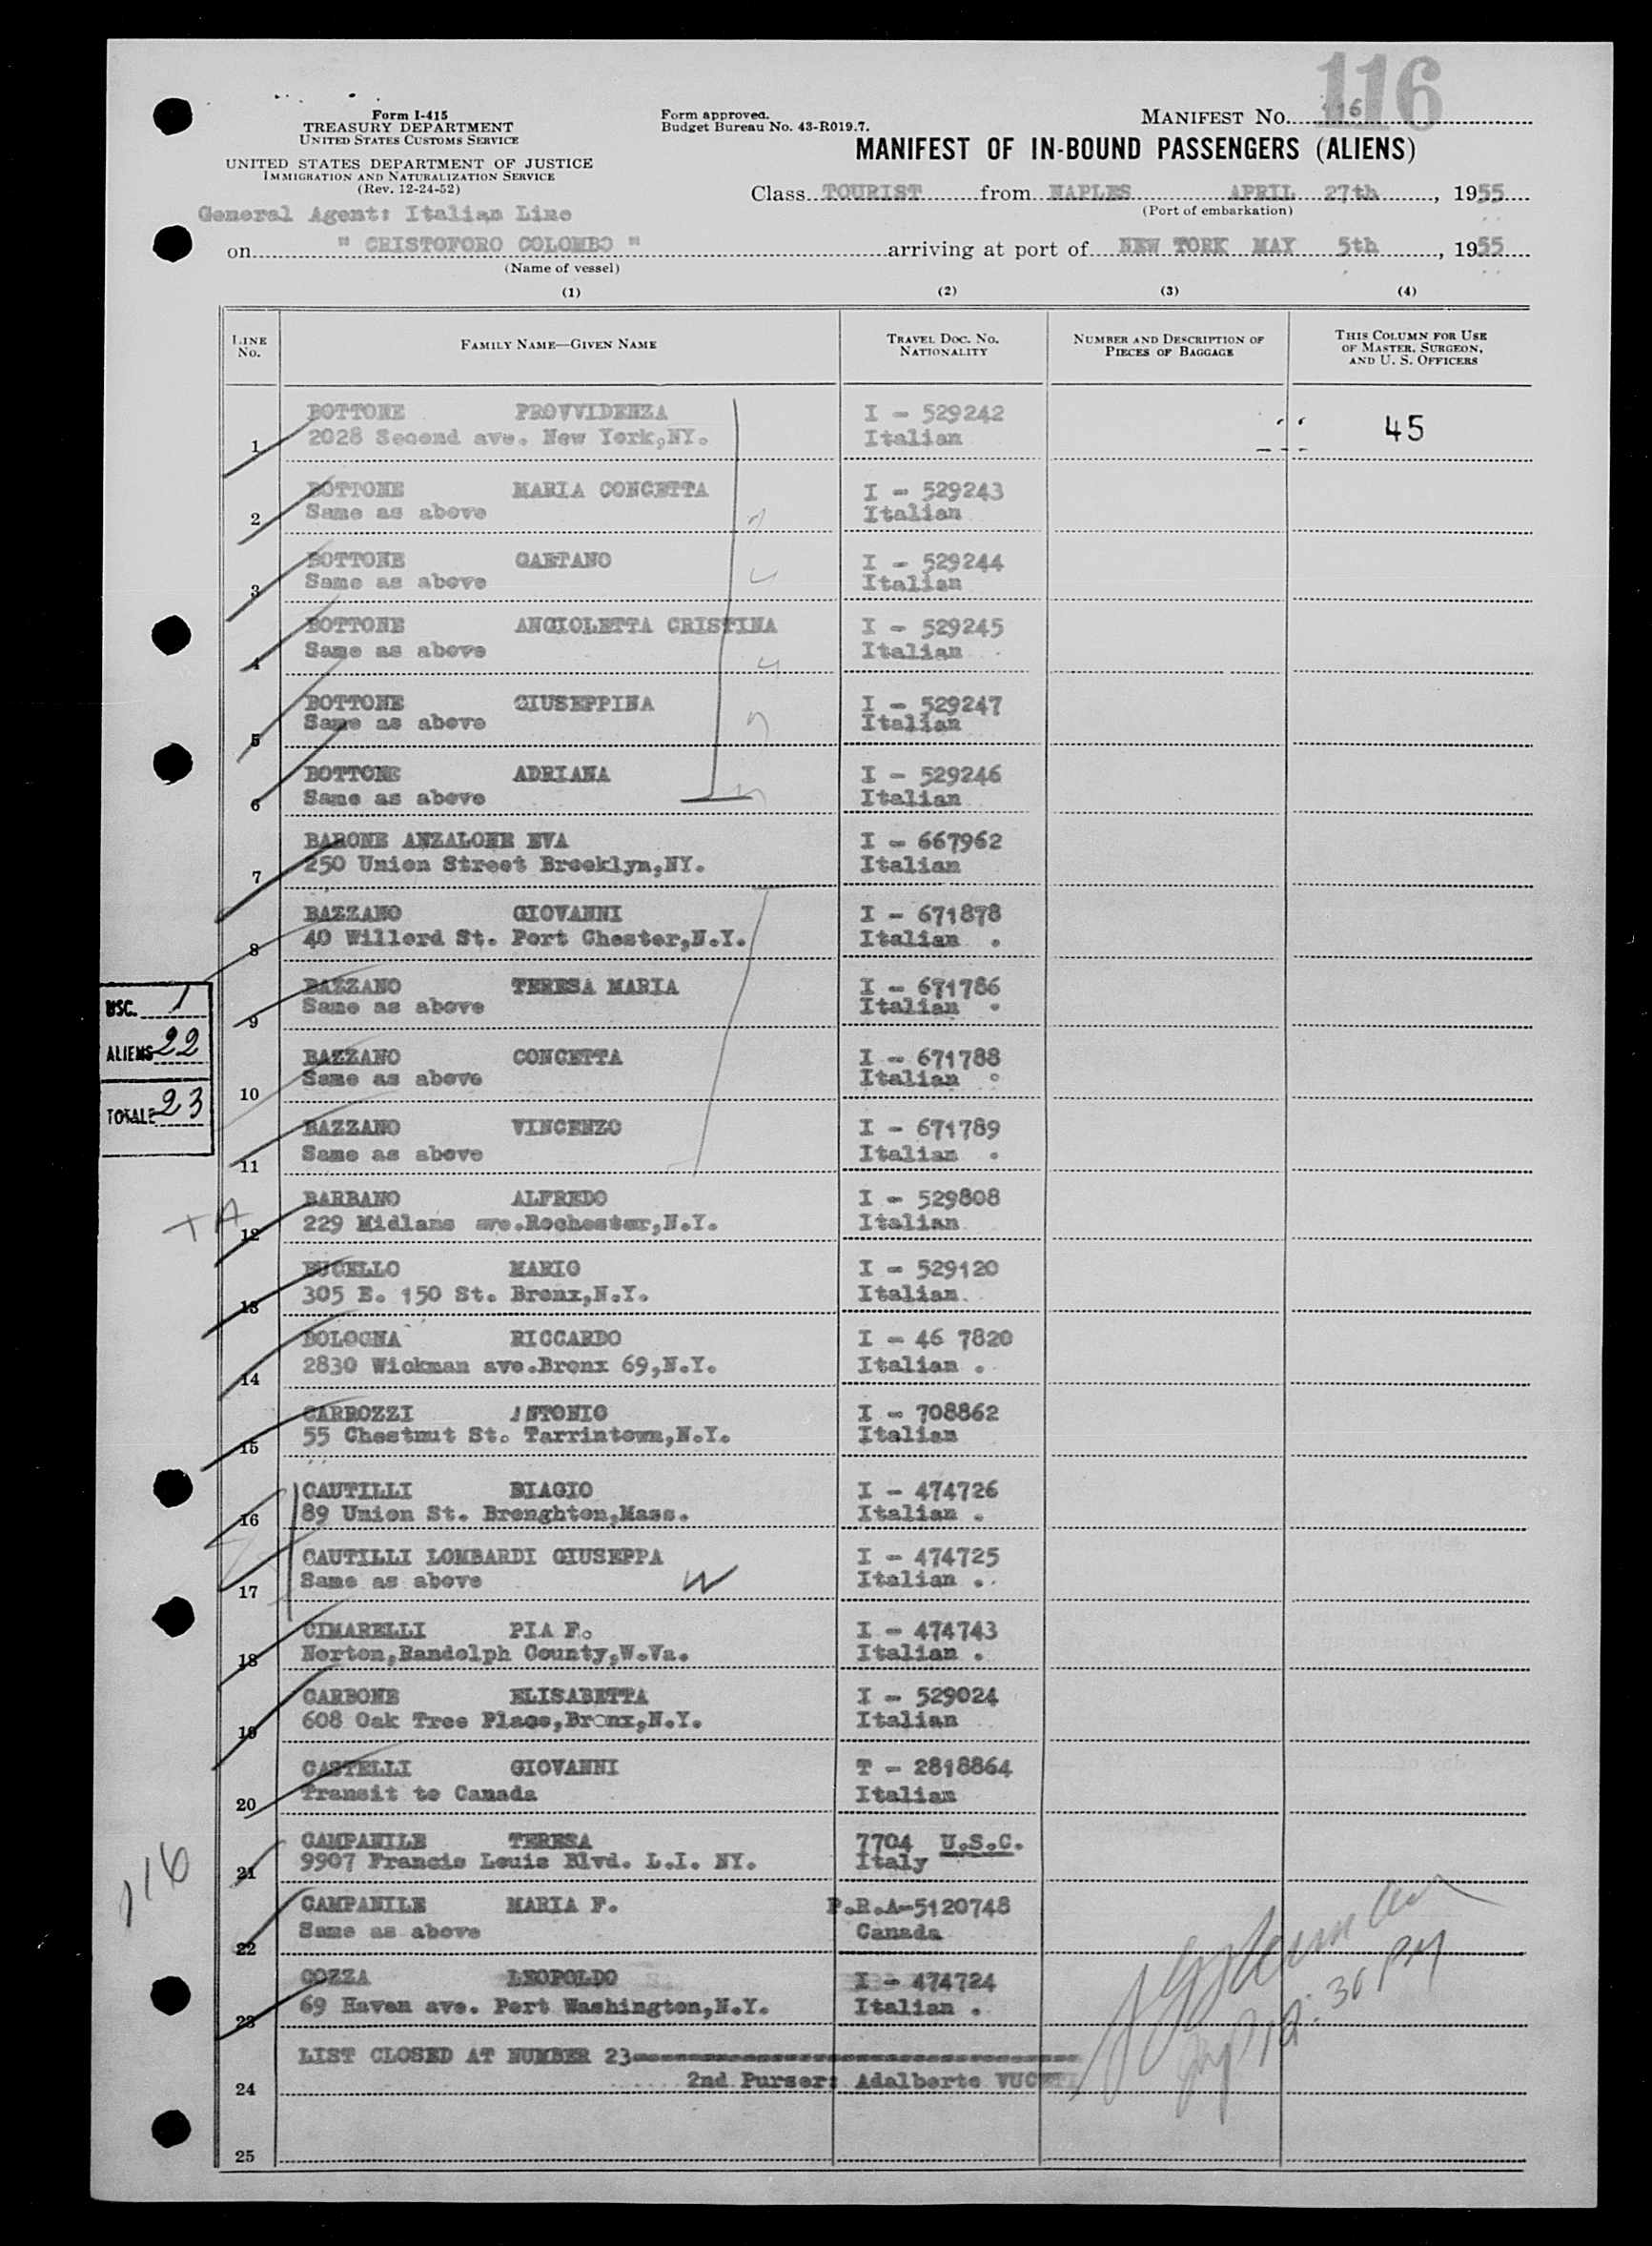 116
Form I-415
TREASURY DEPARTMENT
UNITED STATES CUSTOMS SERVICE
UNITED STATES DEPARTMENT OF JUSTICE
IMMIGRATION AND NATURALIZATION SERVICE
(Rev. 12-24-52)
Form approved.
Budget Bureau No. 43-R019.7.
MANIFEST No. 116
MANIFEST OF IN-BOUND PASSENGERS (ALIENS)
Class TOURIST from NAPLES APRIL 27th, 1955
(Port of embarkation)
General Agent: Italian Line
on " CRISTOFORO COLOMBO " arriving at port of NEW YORK MAY 5th, 1955
(Name of vessel)
(1) (2) (3) (4)
LINE No. FAMILY NAME—GIVEN NAME TRAVEL DOC. No. NATIONALITY NUMBER AND DESCRIPTION OF PIECES OF BAGGAGE THIS COLUMN FOR USE OF MASTER, SURGEON, AND U. S. OFFICERS
BOTTONE PROVVIDENZA I - 529242
1 2028 Second ave. New York,NY. Italian 45
BOTTONE MARIA CONCETTA I - 529243
2 Same as above Italian
BOTTONE GAETANO I - 529244
3 Same as above Italian
BOTTONE ANGIOLETTA CRISTINA I - 529245
4 Same as above Italian
BOTTONE GIUSEPPINA I - 529247
5 Same as above Italian
BOTTONE ADRIANA I - 529246
6 Same as above Italian
BARONE ANZALONE EVA I - 667962
7 250 Union Street Brooklyn,NY. Italian
BAZZANO GIOVANNI I - 671878
8 40 Willerd St. Port Chester,N.Y. Italian .
BAZZANO TERESA MARIA I - 671786
9 Same as above Italian
BAZZANO CONCETTA I - 671788
10 Same as above Italian
BAZZANO VINCENZO I - 671789
11 Same as above Italian
BARBANO ALFREDO I - 529808
12 229 Midlans ave.Rochester,N.Y. Italian
BUCELLO MARIO I - 529120
13 305 E. 150 St. Bronx,N.Y. Italian
BOLOGNA RICCARDO I - 46 7820
14 2830 Wickman ave.Bronx 69,N.Y. Italian .
CARROZZI ANTONIO I - 708862
15 55 Chestnut St. Tarrintown,N.Y. Italian
CAUTILLI BIAGIO I - 474726
16 89 Union St. Brenghton,Mass. Italian .
CAUTILLI LOMBARDI GIUSEPPA I - 474725
17 Same as above W Italian .
CIMARELLI PIA F. I - 474743
18 Norton,Randolph County,W.Va. Italian .
CARBONE ELISABETTA I - 529024
19 608 Oak Tree Place,Bronx,N.Y. Italian
CASTELLI GIOVANNI T - 2818864
20 Transit to Canada Italian
CAMPANILE TERESA 7704 U.S.C.
21 9907 Francis Louis Blvd. L.I. NY. Italy
CAMPANILE MARIA F. P.R.A-5120748
22 Same as above Canada
COZZA LEOPOLDO I - 474724
23 69 Haven ave. Port Washington,N.Y. Italian .
LIST CLOSED AT NUMBER 23
24 2nd Purser: Adalberto
25
USC. 1
ALIENS 22
TOTALE 23
TA
116
12:30 PM